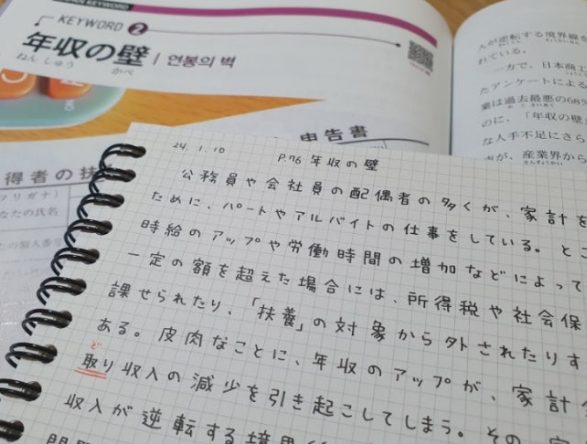 KEYWORD 2
年収の壁 / 연봉의 벽
ねんしゅう かべ
申告書
得者の扶
フリガナ)
なたの氏名
人が逆転する境界線を
れている。
一方で、日本商工
たアンケートによる
業は過去最悪の6
のに、「年収の壁
な人手不足にさら
声が、産業界から
24.1.10 P.76 年収の壁
公務員や会社員の配偶者の多くが、家計を
ために、パートやアルバイトの仕事をしている。とこ
時給のアップや労働時間の増加などによって
一定の額を超えた場合には、所得税や社会保
課せられたり、「扶養」の対象から外されたりす
ある。皮肉なことに、年収のアップが、家計
ど
取り収入の減少を引き起こしてしまう。その
収入が逆転する境界